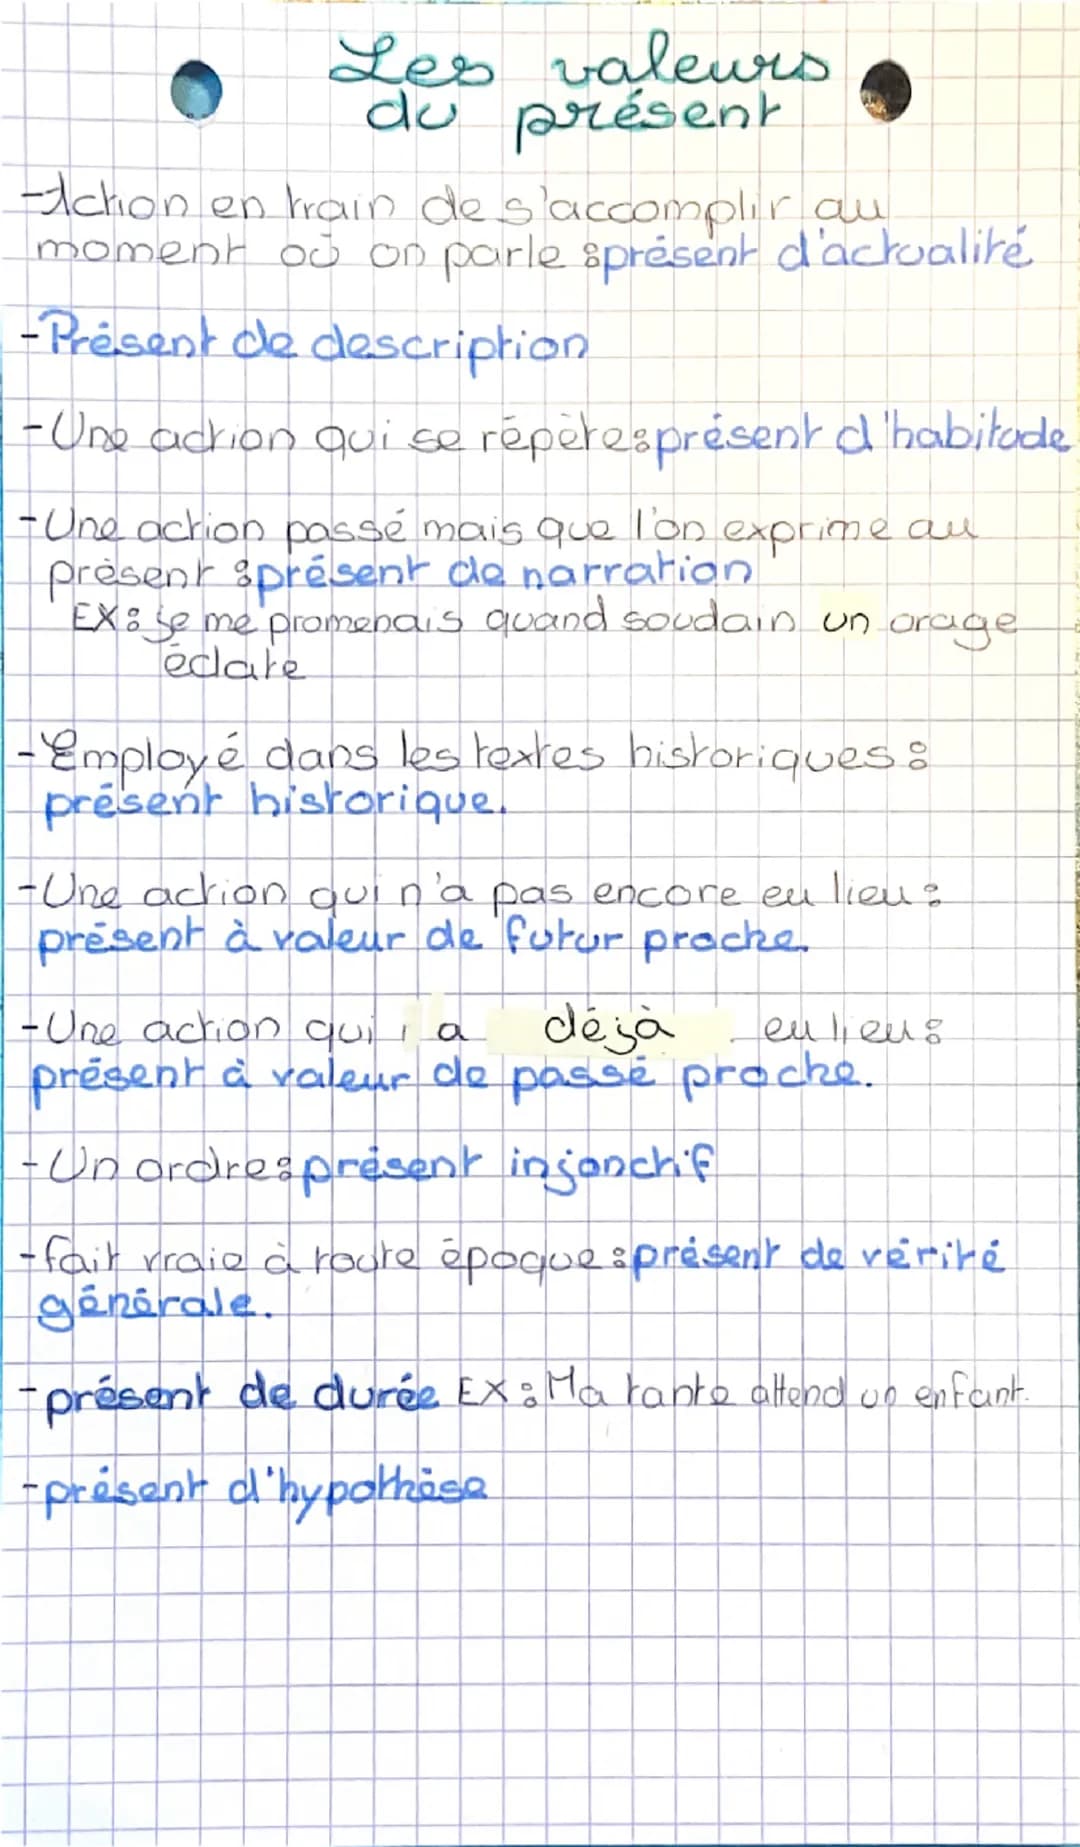 Les valeurs
du présent
-Action en train de s'accomplir au
moment où on parle : présent d'actualité
-Présent de description
-Une action qui se répète : présent d'habitude
-Une action passé mais que l'on exprime au
présent : présent de narration
EX : je me promenais quand soudain un orage
éclate
-Employé dans les textes historiques :
présent historique.
-Une action qui n'a pas encore eu lieu :
présent à valeur de futur proche.
-Une action qui a déjà eu lieu :
présent à valeur de passé proche.
-Un ordre : présent injonctif
-fait vraie à toute époque : présent de vérité
générale.
-présent de durée EX : Ma tante attend un enfant.
-présent d'hypothèse